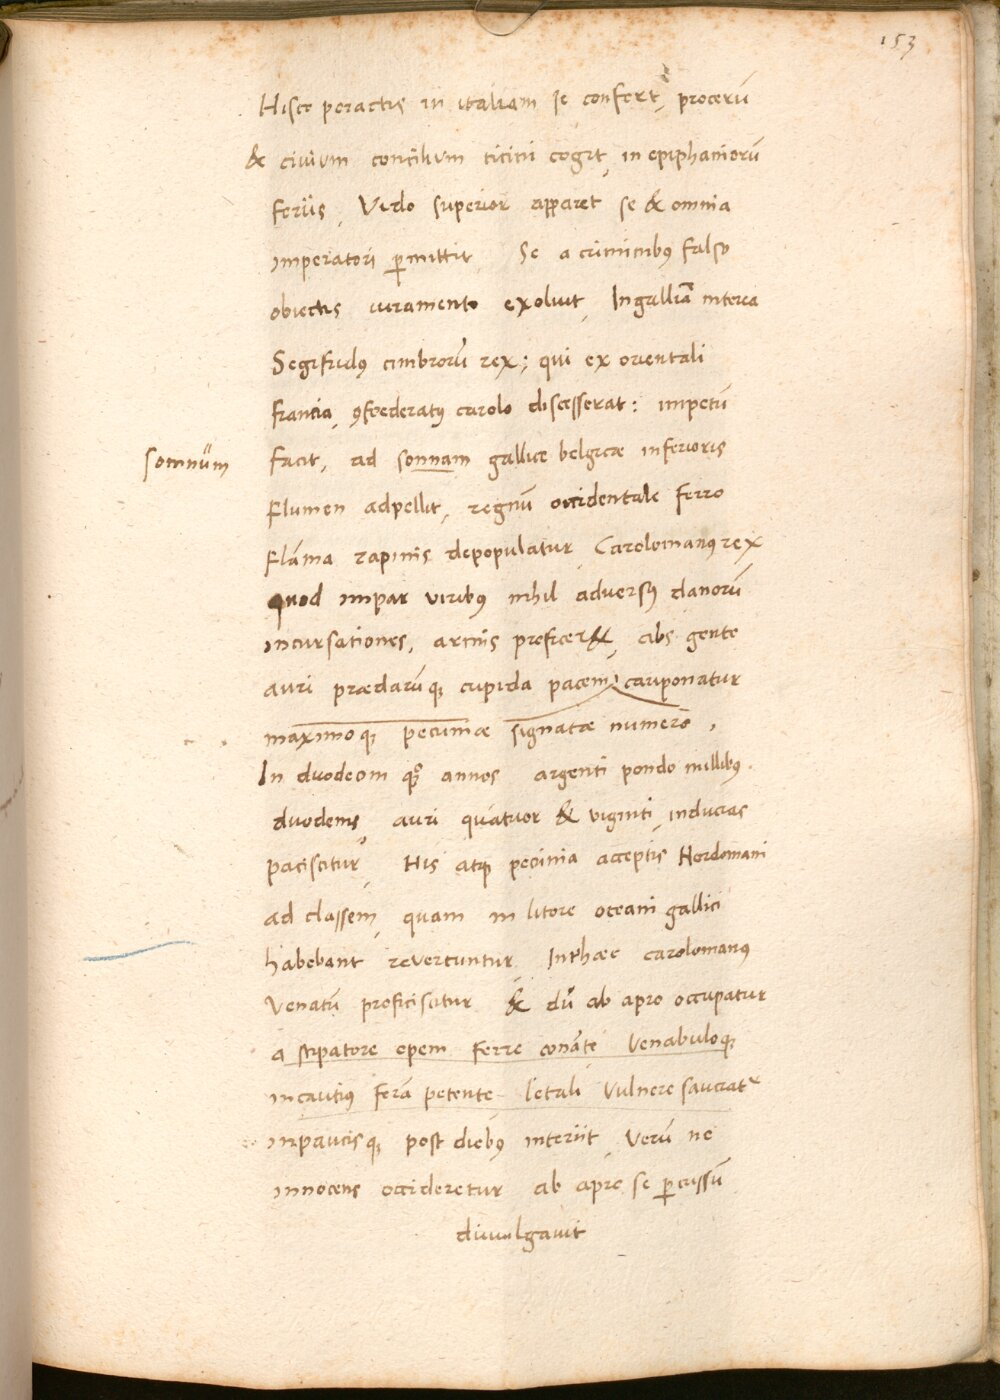 153
Hisce peractis in italiam se confert, procerū
& ciuium concilium ticini cogit, in epiphaniorū
feriis, Vido superior apparet se & omnia
imperatori ꝑmittit Se a criminibꝰ falso
obiectis iuramento exoluit, In galliā interea
Segifridꝰ cimbrorū rex; qui ex orientali
francia, ꝯfoederatꝰ carolo discesserat: impetū
facit, ad sonnam gallice belgicæ inferioris
somnum
flumen adpellit, regnū occidentale ferro
flāma rapinis depopulatur Carolomanꝰ rex
quod impar viribꝰ nihil adversꝰ danorū
incursationes, armis proficer&, abs gente
auri prædarūqꝫ cupida pacem cauponatur
maximoqꝫ pecuniæ signatæ numero,
In duodeom annos argenti pondo millibꝰ
duodenis, auri quatuor & viginti, inducias
paciscitur, His atqꝫ pecinia acceptis Nordomani
ad classem, quam in litore oceani gallici
habebant revertuntur, Inthæc carolomanus
venatū proficiscitur & dū ab apro occupatur
a stipatore opem ferre conāte Venabuloqꝫ
incautius ferā petente letali vulnere sauciatʳ
inpaucisqꝫ post diebꝰ interiit, verū ne
innocens occideretur ab apro se ꝑcussū
diuulgauit